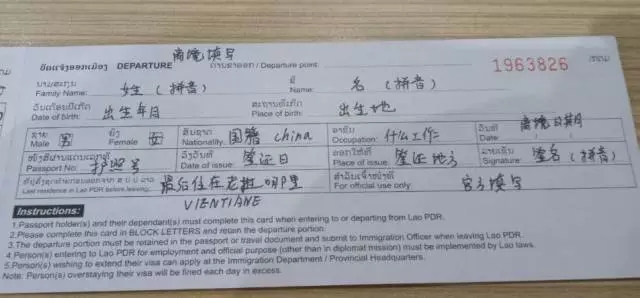 离境填写
ບັດແຈ້ງອອກເມືອງ DEPARTURE ດ່ານຂາອອກ / Departure point: 1963826
ນາມສະກຸນ ຊື່
Family Name: 姓 (拼音) Name: 名 (拼音)
ວັນເດືອນປີເກີດ ສະຖານທີ່ເກີດ
Date of birth: 出生年月 Place of birth: 出生地
ຊາຍ ຍິງ ສັນຊາດ ອາຊີບ ວັນທີ 离境日期
Male 男 Female 女 Nationality: 国籍 China Occupation: 什么工作 Date:
ໜັງສືຜ່ານແດນເລກທີ ລົງວັນທີ ອອກໃຫ້ທີ່ ລາຍເຊັນ
Passport No: 护照号 Date of issue: 签证日 Place of issue: 签证地方 Signature: 签名 (拼音)
ສໍາລັບເຈົ້າໜ້າທີ່
Last residence in Lao PDR before leaving: 最后住在老挝哪里 For official use only: 官方填写
VIENTIANE
Instructions:
1.Passport holder(s) and their dependant(s) must complete this card when entering to or departing from Lao PDR.
2.Please complete this card in BLOCK LETTERS and retain the departure portion.
3.The departure portion must be retained in the passport or travel document and submit to Immigration Officer when leaving Lao PDR.
4.Person(s) entering to Lao PDR for employment and official purpose (other than in diplomat mission) must be implemented by Lao laws.
5.Person(s) wishing to extend their visa can apply at the Immigration Department / Provincial Headquarters.
Note: Person(s) overstaying their visa will be fined each day in excess.